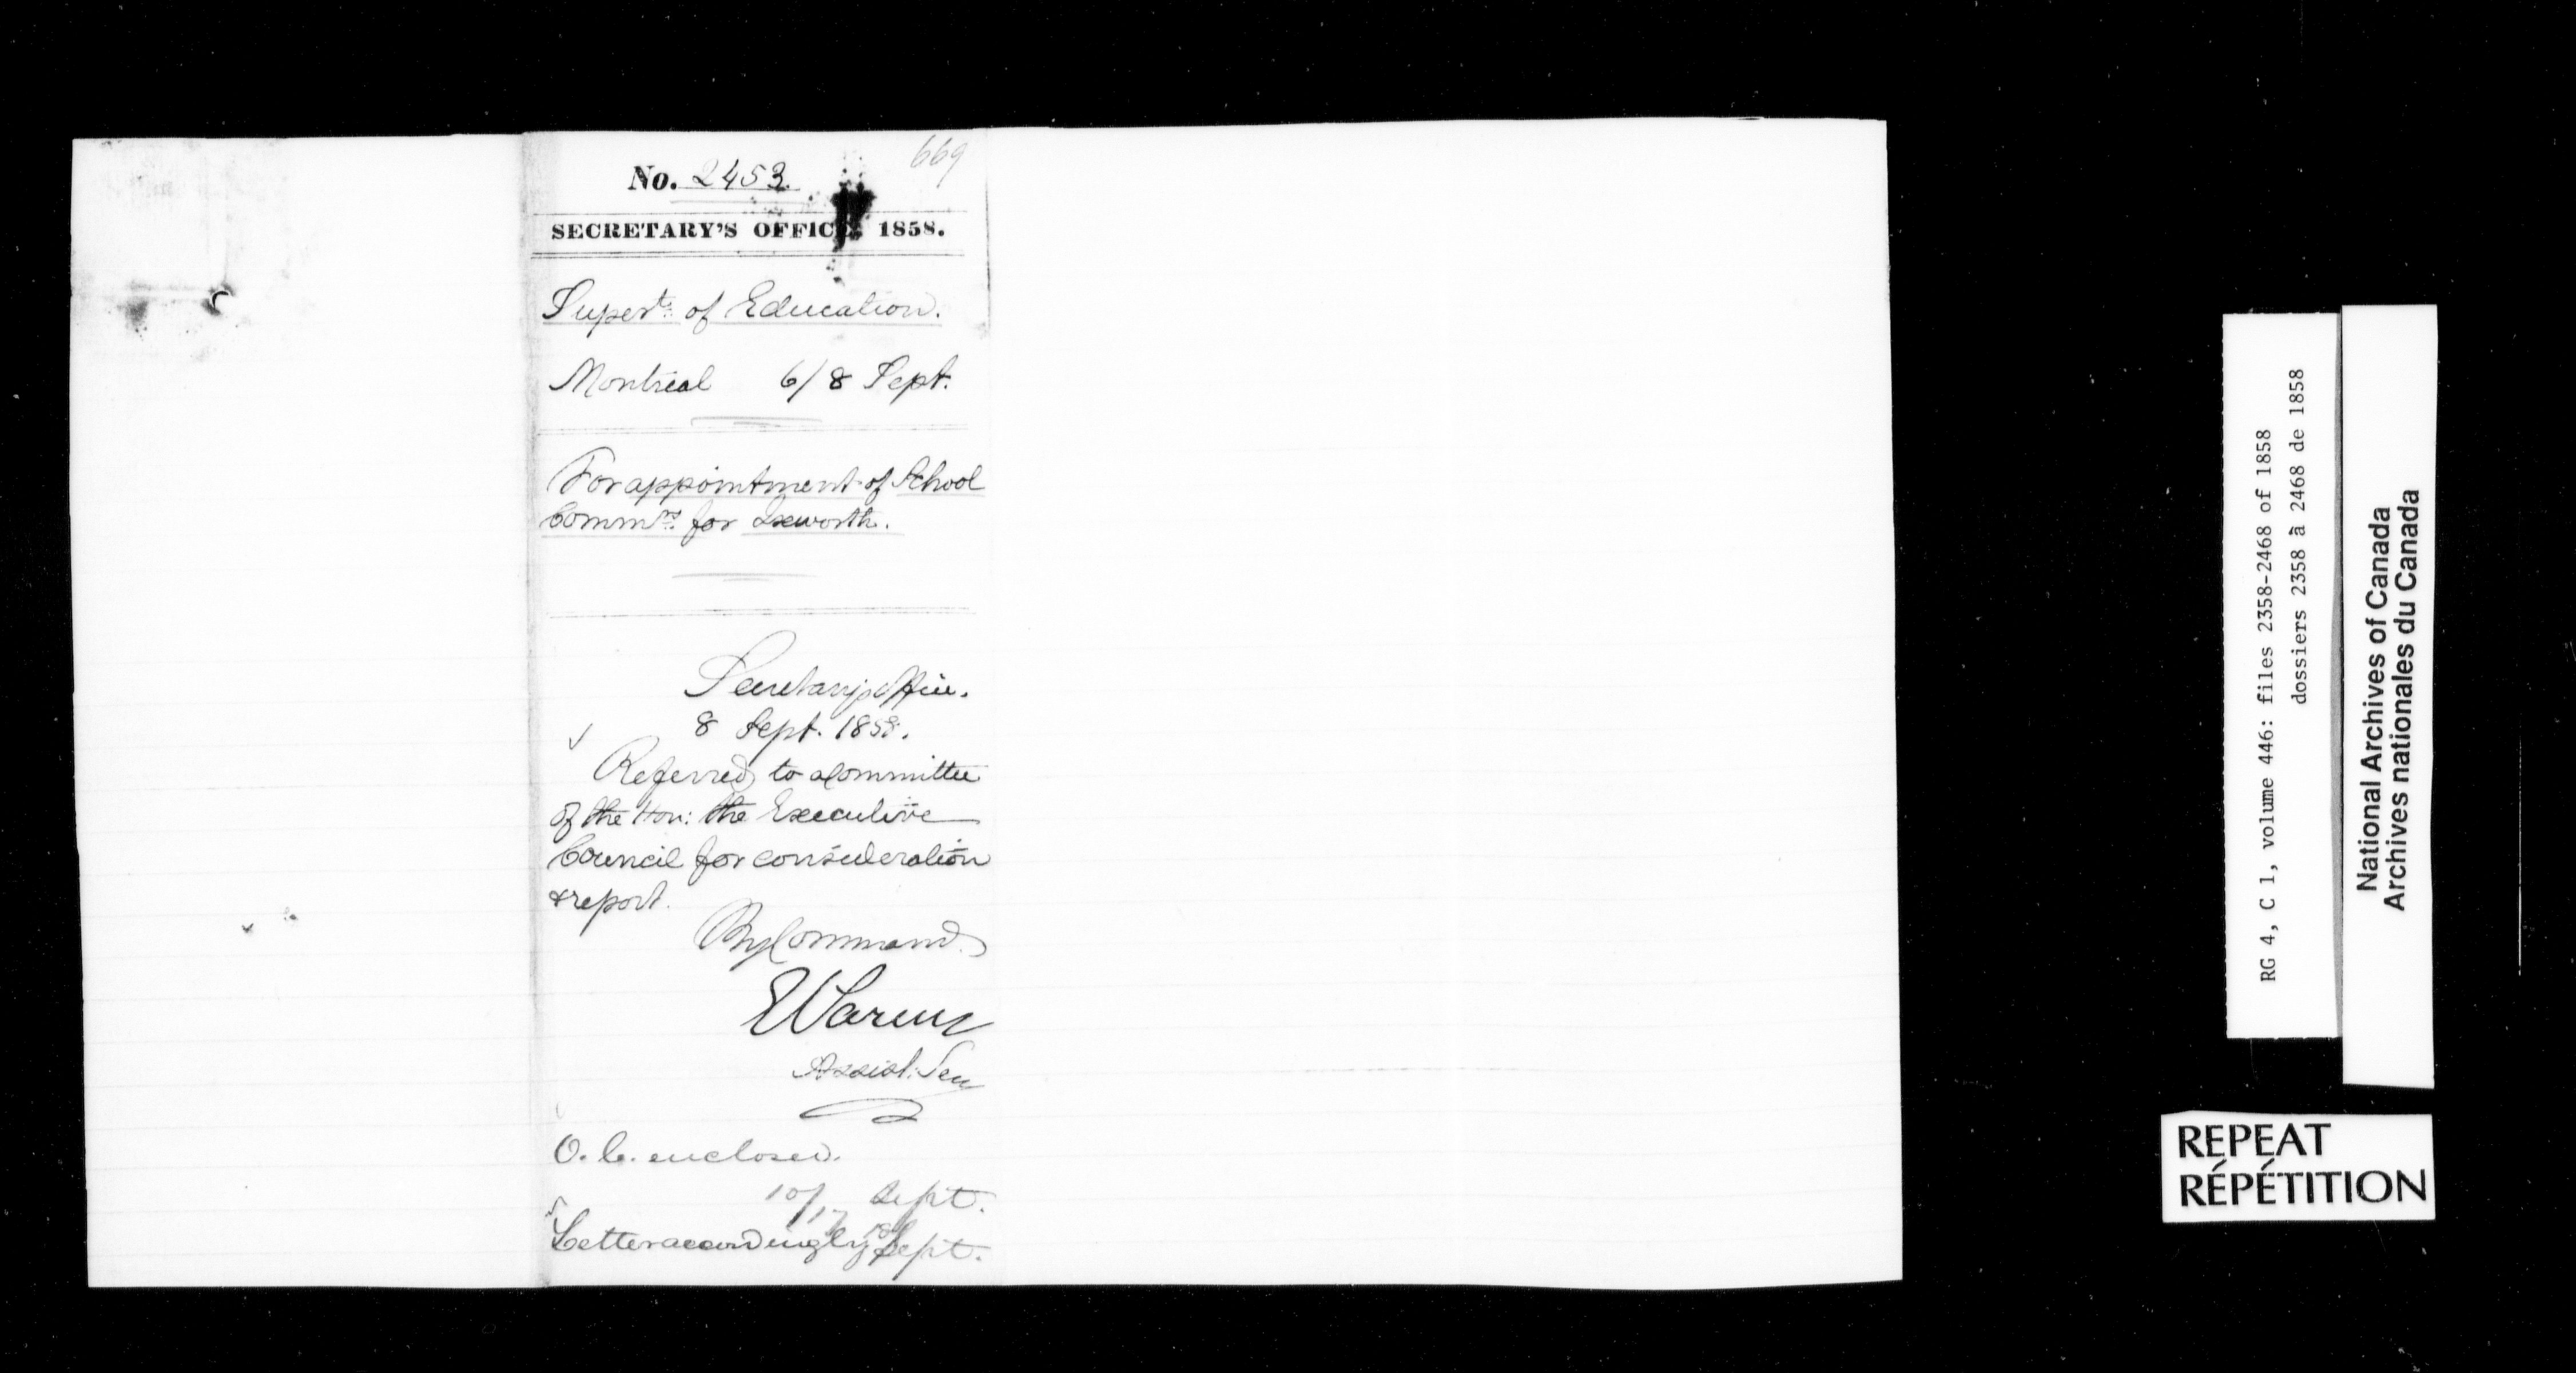 669
No. 2453.
SECRETARY'S OFFICE 1858.
Supert. of Education.
Montreal 6/8 Sept.
For appointment of School
Commrs. for Ixworth.
Secretary's Office.
8 Sept. 1858.
Referred to a Committee
of the Hon: the Executive
Council for consideration
& report.
By Command
Assist. Secy
O. C. enclosed.
10/17 Sept.
Letter accordingly 18 Sept.
RG 4, C 1, volume 446: files 2358-2468 of 1858
dossiers 2358 à 2468 de 1858
National Archives of Canada
Archives nationales du Canada
REPEAT
RÉPÉTITION